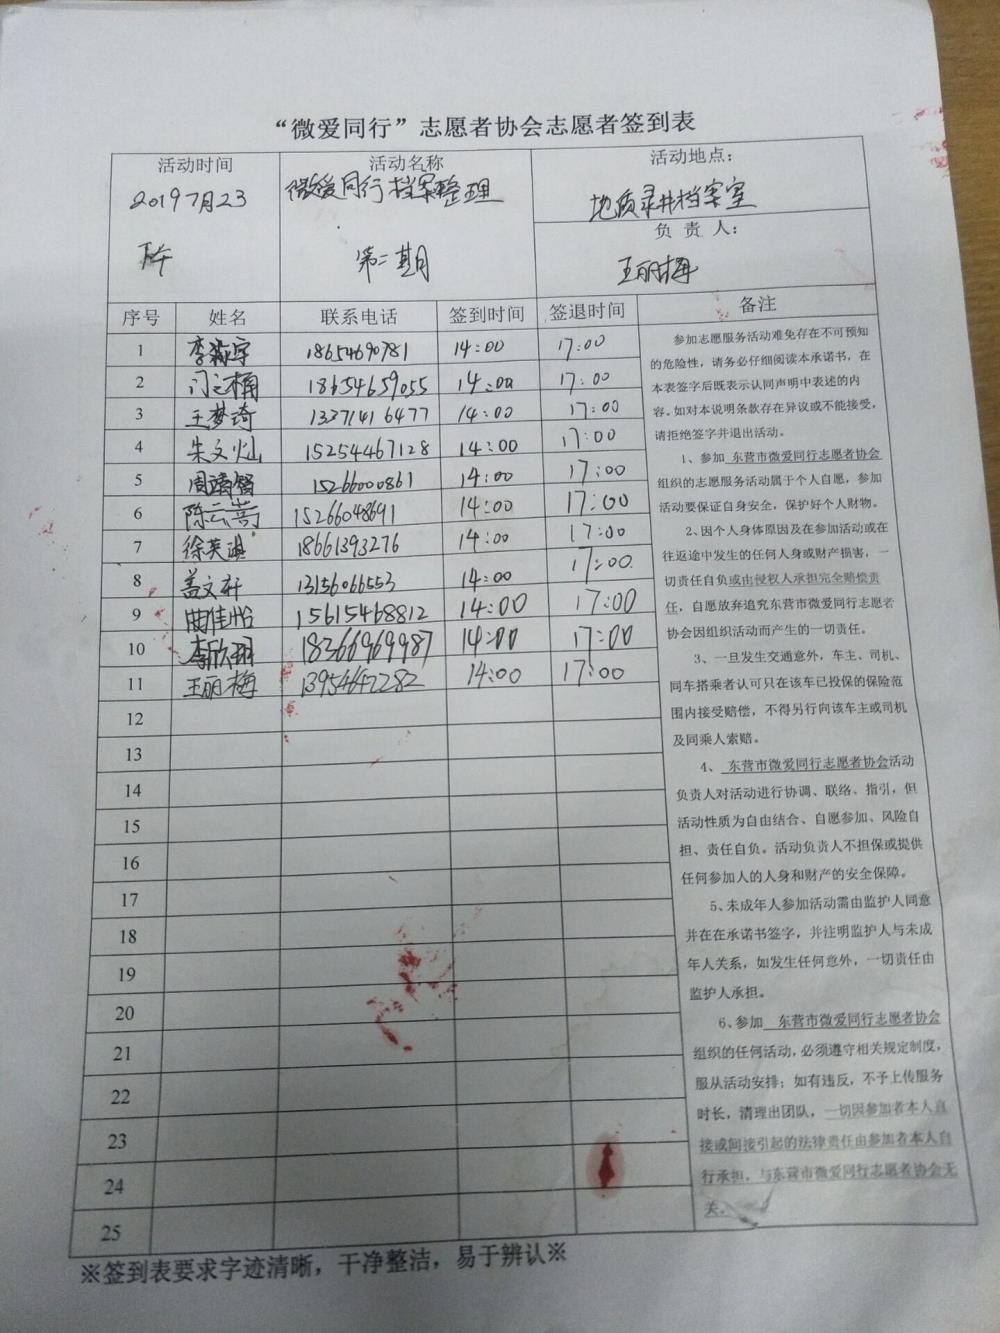 “微爱同行”志愿者协会志愿者签到表
活动时间
2019 7月23
下午
活动名称
微爱同行档案整理
第二期
活动地点：
地质录井档案室
负 责 人：
王丽梅
序号 姓名 联系电话 签到时间 签退时间 备注
1 18654690781 14:00 17:00
2 18654659055 14:00 17:00
3 王梦琦 13371416477 14:00 17:00
4 朱文灿 15254467128 14:00 17:00
5 15266000861 14:00 17:00
6 陈云嵩 15266048691 14:00 17:00
7 徐英淇 18661393276 14:00 17:00
8 盖文轩 13156066553 14:00 17:00.
9 曲佳怡 15615468812 14:00 17:00
10 李欣翔 18366969987 14:00 17:00
11 王丽梅 13954647282 14:00 17:00
12
13
14
15
16
17
18
19
20
21
22
23
24
25
参加志愿服务活动难免存在不可预知
的危险性，请务必仔细阅读本承诺书，在
本表签字后既表示认同声明中表述的内
容。如对本说明条款存在异议或不能接受，
请拒绝签字并退出活动。
1、参加 东营市微爱同行志愿者协会
组织的志愿服务活动属于个人自愿，参加
活动要保证自身安全，保护好个人财物。
2、因个人身体原因及在参加活动或在
往返途中发生的任何人身或财产损害，一
切责任自负或由侵权人承担完全赔偿责
任，自愿放弃追究东营市微爱同行志愿者
协会因组织活动而产生的一切责任。
3、一旦发生交通意外，车主、司机、
同车搭乘者认可只在该车已投保的保险范
围内接受赔偿，不得另行向该车主或司机
及同乘人索赔。
4、 东营市微爱同行志愿者协会活动
负责人对活动进行协调、联络、指引，但
活动性质为自由结合、自愿参加、风险自
担、责任自负。活动负责人不担保或提供
任何参加人的人身和财产的安全保障。
5、未成年人参加活动需由监护人同意
并在在承诺书签字，并注明监护人与未成
年人关系，如发生任何意外，一切责任由
监护人承担。
6、参加 东营市微爱同行志愿者协会
组织的任何活动，必须遵守相关规定制度，
服从活动安排；如有违反，不予上传服务
时长，清理出团队，一切因参加者本人直
接或间接引起的法律责任由参加者本人自
行承担，与东营市微爱同行志愿者协会无
关。
※签到表要求字迹清晰，干净整洁，易于辨认※